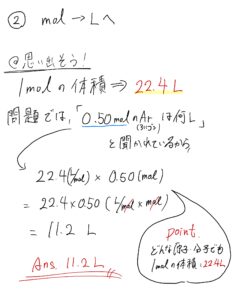 ② mol → L へ
@思い出そう!
1molの体積 ⇒ 22.4L
問題では、「0.50molのArは何L」
(アルゴン)
と聞かれているから
22.4(L/mol) × 0.50(mol)
= 22.4×0.50 (L/mol × mol)
= 11.2 L
Ans. 11.2L
Point.
どんな原子・分子でも
1molの体積:22.4L